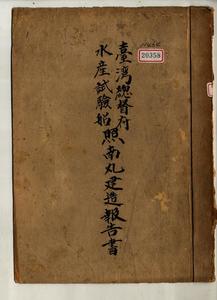 臺灣總督府
水産試驗船照南丸建造報告書
20358